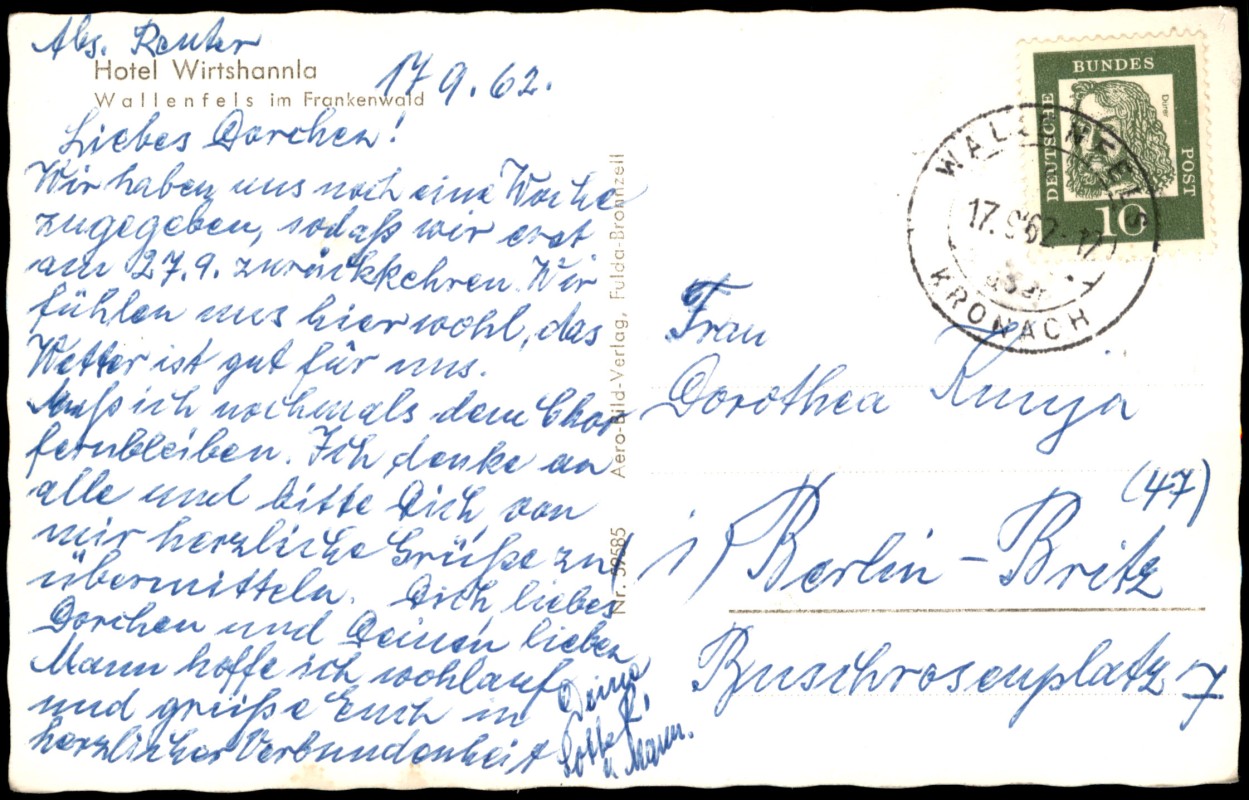 Abs. Reuter
Hotel Wirtshannla
Wallenfels im Frankenwald
17 9. 62.
Liebes Dorchen!
Wir haben uns noch eine Woche
zugegeben, sodaß wir erst
am 27.9. zurückkehren. Wir
fühlen uns hier wohl, das
Wetter ist gut für uns.
Muß ich nochmals dem Chor
fernbleiben. Ich denke an
alle und bitte Dich, von
mir herzliche Grüße zu
übermitteln. Dich, liebes
Dorchen und Deinen lieben
Mann hoffe ich wohlauf
und grüße Euch in
herzlicher Verbundenheit
Deine
Lotte R.
u. Mann.
Nr. 59585 Aero-Bild-Verlag, Fulda-Bronnzell
DEUTSCHE BUNDES POST
Dürer
10
WALLENFELS
17.9.62-17
KRONACH
Frau
Dorothea
1) Berlin-Britz
(47)
Buschrosenplatz 7